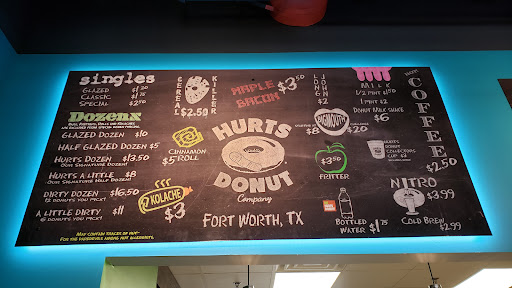 singles
GLAZED $1.20
CLASSIC $1.75
SPECIAL $2.50
Dozens
GLAZED DOZEN $10
HALF GLAZED DOZEN $5
HURTS DOZEN $13.50
OUR SIGNATURE DOZEN!
HURTS A LITTLE $8
OUR SIGNATURE HALF DOZEN!
DIRTY DOZEN $16.50
12 DONUTS YOU PICK!
A LITTLE DIRTY $11
6 DONUTS YOU PICK!
MAY CONTAIN TRACES OF NUT-
CEREAL KILLER
$2.50
CINNAMON ROLL
$5
KOLACHE
$3
MAPLE BACON $3.50
HURTS DONUT
Company
FORT WORTH, TX
LONG JOHN
$2
BIGMOUTH
$8
$20
$3.50
FRITTER
BOTTLED WATER $1.75
MILK
1/2 PINT $1.50
1 PINT $2
DONUT MILK SHAKE
$6
HURTS DONUT
COLLECTORS
CUP $3
NITRO
$3.99
COLD BREW $2.99
COFFEE
$2.50